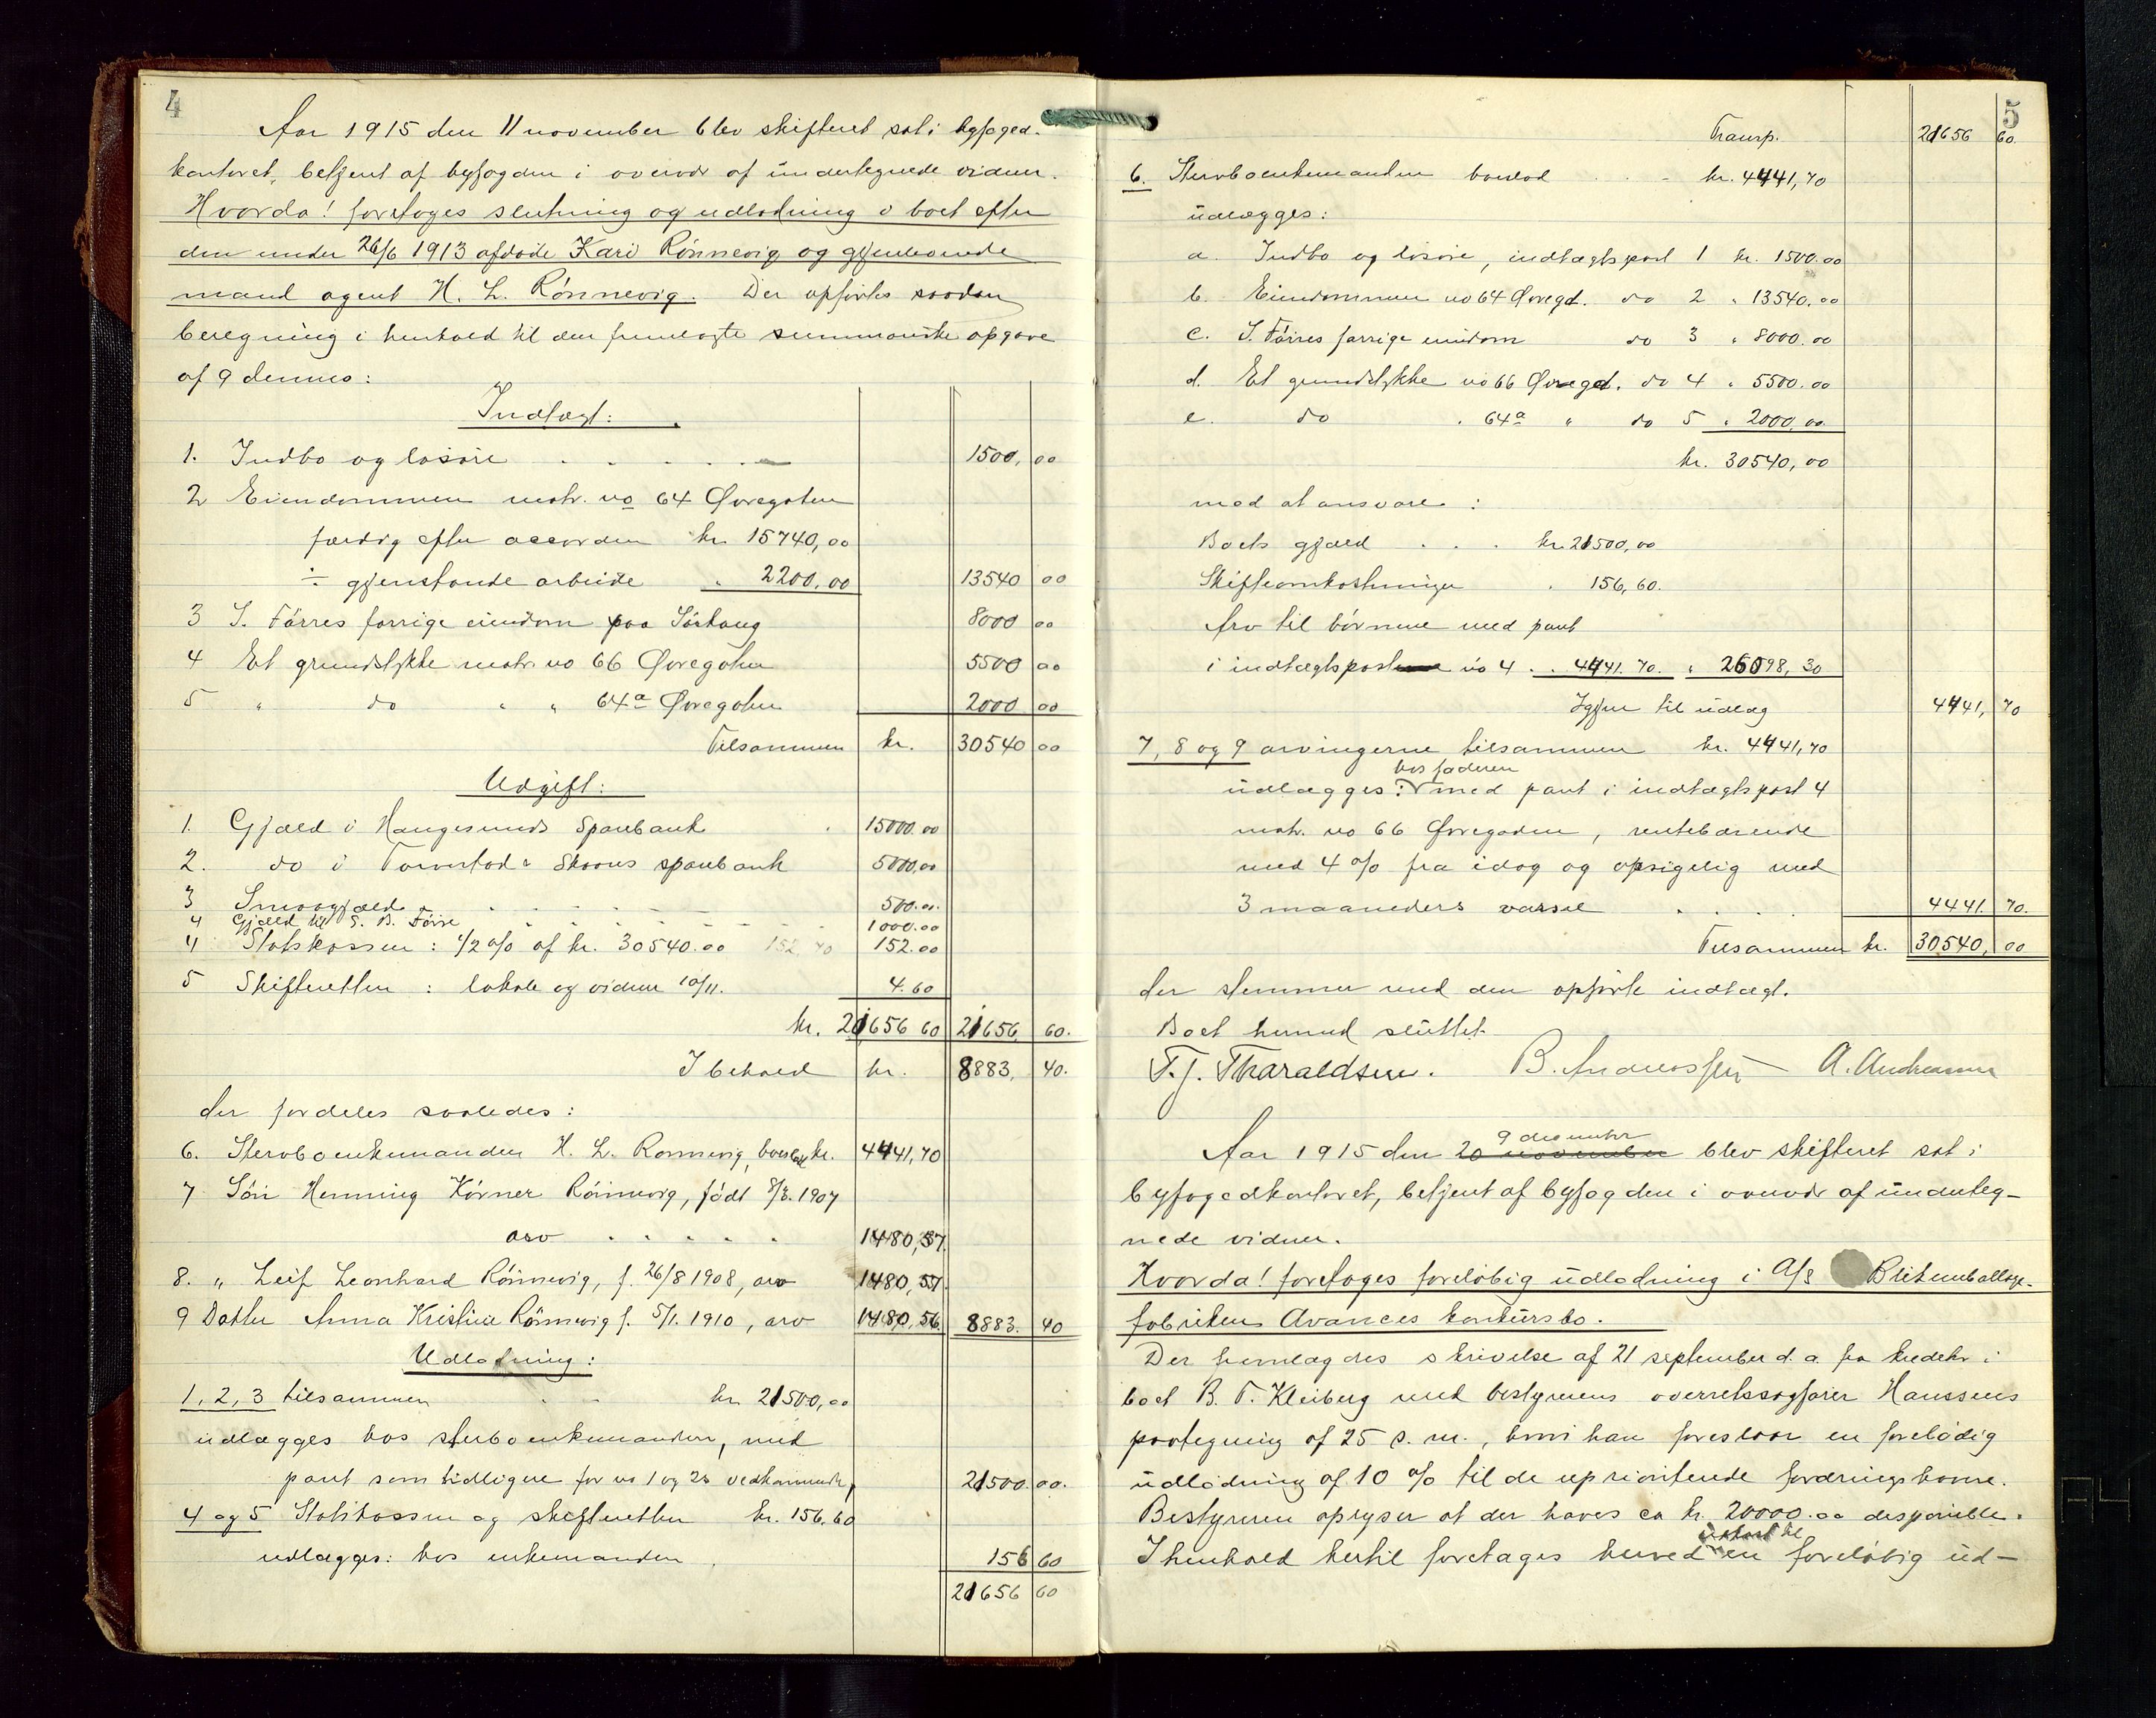 4
Aar 1915 den 11 november blev skifteret sat i byfoged-
kontoret, betjent af byfogden i overvær af undertegnede vidner.
Hvorda! foretoges slutning og udlodning i boet efter
den under 26/6 1913 afdøde Kari Rönnevig og gjenlevende
mand agent H. L. Rönnevig. Der opførtes saadan
beregning i henhold til den fremlagte summariske opgave
af 9 dennes:
Indtægt:
1. Indbo og løsøre . . . . . 1500, 00
2 Eiendommen matr. no 64 Øvregaten
færdig efter accorden kr. 15740,00
÷ gjenstaaende arbeide " 2200,00 13540 00
3 S. Førres forrige eiendom paa Sørhaug 8000 00
4 Et grundstykke matr. no 66 Øvregaten 5500 00
5 " do " " 64a Øvregaten 2000 00
Tilsammen kr. 30540 00
Udgift:
1. Gjæld i Haugesunds Sparebank . 15000.00
2. do i Torvestad & Skaares sparebank 5000,00
3 Smaagjæld . . . . . 500.00
4 Gjæld til S. B. Førre . . . . . 1000.00
4 Statskassen : 1/2 % af kr. 30540.00 152.70 152.00
5 Skifteretten : lokale og vidner 10/11. 4.60
kr. 21656 60 21656, 60.
I behold kr. 8883, 40.
der fordeles saaledes :
6. Stervboenkemanden H. L. Rønnevig, boeslod kr. 4441,70
7 Søn Henning Körner Rönnevig, født 8/3. 1907
arv . . . . . 1480,57.
8. " Leif Leonhard Rönnevig, f. 26/8 1908, arv 1480,57.
9 Datter Anna Kristine Rönnevig f. 5/1. 1910, arv 1480,56. 8883. 40
Udlodning:
1, 2, 3 tilsammen . . kr. 21500,00
udlægges hos stervboenkemanden, med
pant som tidligere for no 1 og 2s vedkommende, 21500.00.
4 og 5 Statskassen og skifteretten kr. 156.60
udlægges: hos enkemanden . 156 60
21656 60
5
Transp. 21656 60.
6. Stervboenkemanden boeslod . . kr. 4441,70
udlægges:
a. Indbo og løsøre, indtægtspost 1 kr. 1500.00
b. Eiendommen no 64 Øvregd. do 2 " 13540.00
c. S. Førres forrige eiendom do 3 " 8000.00
d. Et grundstykke no 66 Øvregd. do 4 " 5500.00
e. do . 64a " do 5 " 2000,00.
kr. 30540,00
mod at ansvare :
Boets gjæld . . . kr. 21500,00
Skifteomkostninger . 156,60.
Arv til børnene med pant
i indtægtspost no 4 . . 4441.70. " 26098,30
Igjen til udlæg 4441, 70
7, 8 og 9 arvingerne tilsammen kr. 4441,70
hos faderen
udlægges: med pant i indtægtspost 4
matr. no 66 Øvregaden, rentebærende
med 4 % fra idag og opsigelig med
3 maaneders varsel . . . . 4441. 70.
Tilsammen kr. 30540, 00
der stemmer med den opførte indtægt.
Boet hermed sluttet.
T. J. Tharaldsen. B. Anderssen A. Andreassen
9 december
Aar 1915 den 20 november blev skifteret sat i
byfogedkontoret, betjent af byfogden i overvær af underteg-
nede vidner.
Hvorda! foretoges foreløbig udlodning i A/S Blikemballage-
fabriken Avances konkursbo.
Der fremlagdes skrivelse af 21 september d. a. fra kreditor i
boet B. T. Kleiberg med bestyrerens overretssagfører Hanssens
paategning af 25 s. m., hvori han foreslaar en foreløbig
udlodning af 10 % til de uprioriterede fordringshavere.
Bestyreren oplyser at der haves ca kr. 20000.00 disponible.
I henhold hertil foretages herved en foreløbig ud-